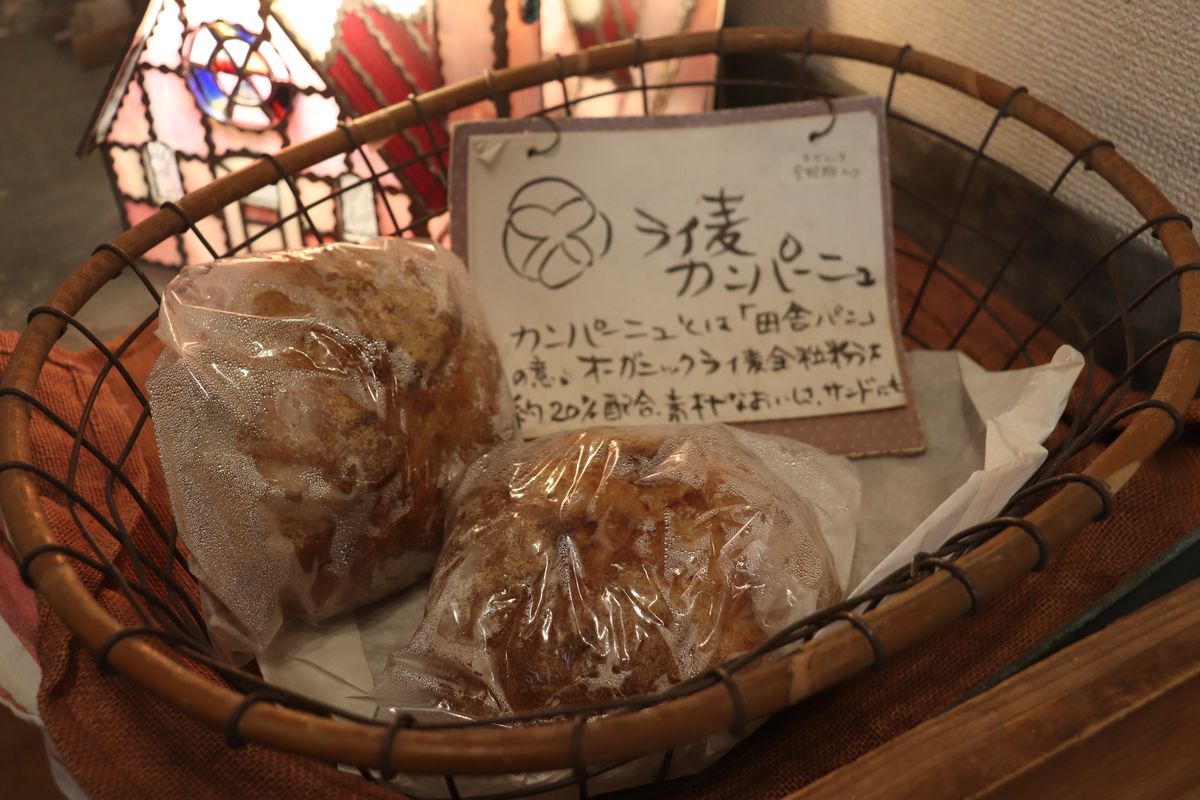 オーガニック
全粒粉入り
ライ麦
カンパーニュ
カンパーニュとは「田舎パン」
の意。オーガニックライ麦全粒粉を
約20%配合。素朴なおいしさ。サンドにも